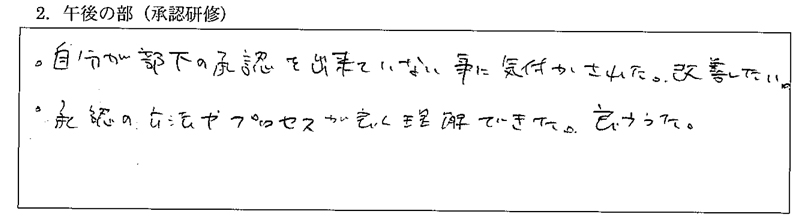 2. 午後の部（承認研修）
。自分が部下の承認を出来ていない事に気付かされた。改善したい。
。承認の方法やプロセスが良く理解できた。良かった。